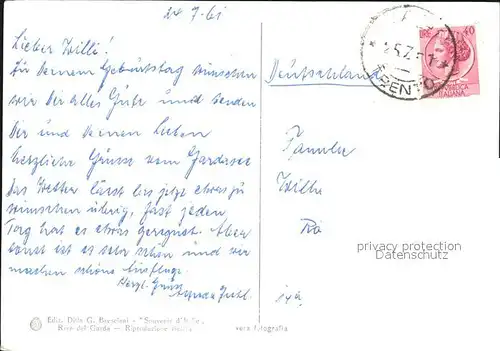 24.7.61
Lieber Willi!
Zu Deinem Geburtstag wünschen
wir Dir alles Gute und senden
Dir und Deinen Lieben
herzliche Grüsse vom Gardasee
Das Wetter lässt bis jetzt etwas zu
wünschen übrig, fast jeden
Tag hat es etwas geregnet. Aber
sonst ist es sehr schön und wir
machen schöne Ausflüge.
Herzl. Grüsse
Deutschland
Familie
Willi
LIRE 40
REPUBBLICA
ITALIANA
TRENTO
privacy protection
Datenschutz
Ediz. Ditta G. - "Souvenir d'Italie"
Riva del Garda — Riproduzione
vera fotografia